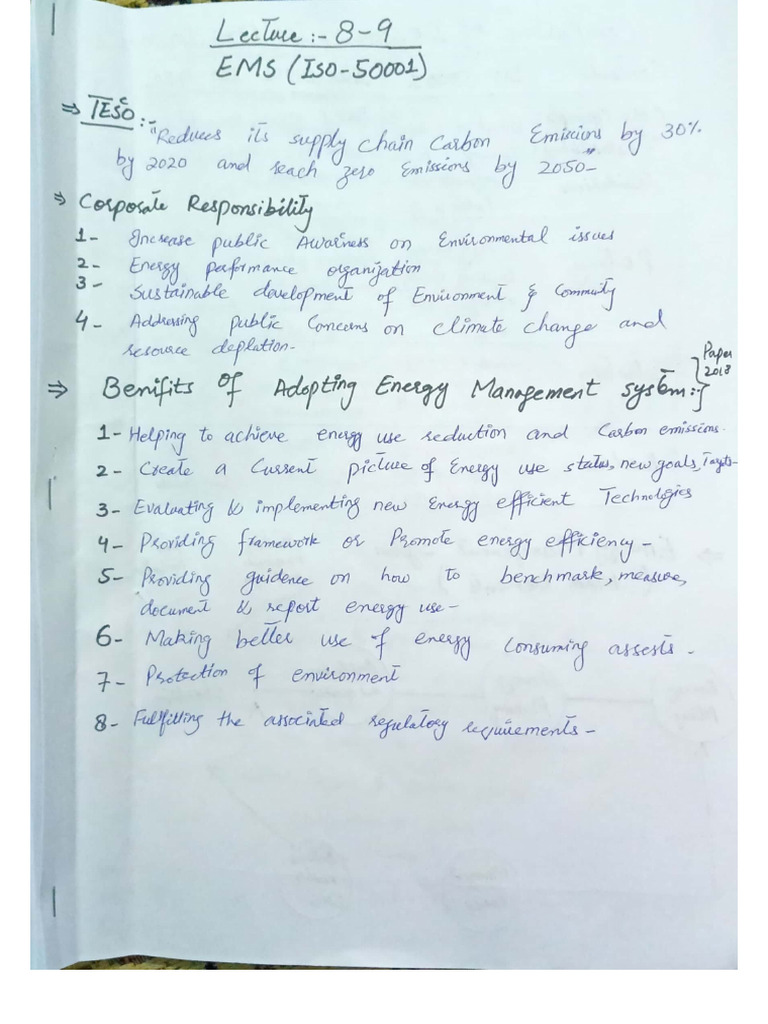 Lecture :- 8-9
EMS (ISO-50001)
⇒ TESCO :-
"Reduces its supply chain Carbon Emissions by 30%
by 2020 and reach zero Emissions by 2050"-
⇒ Corporate Responsibility
1- Increase public Awarness on Environmental issues
2- Energy performance organization
3- Sustainable development of Environment & Community
4- Addressing public Concerns on climate change and
resource depletion-
⇒ Benifits of Adopting Energy Management system:-} Paper
2018
1- Helping to achieve energy use reduction and Carbon emissions.
2- Create a Current picture of Energy use status, new goals, Targets-
3- Evaluating & implementing new Energy efficient Technologies
4- Providing framework or Promote energy efficiency-
5- Providing guidence on how to benchmark, measure,
document & report energy use-
6- Making better use of energy Consuming assests-
7- Protection of environment
8- Fulfilling the associated regulatory requirements-